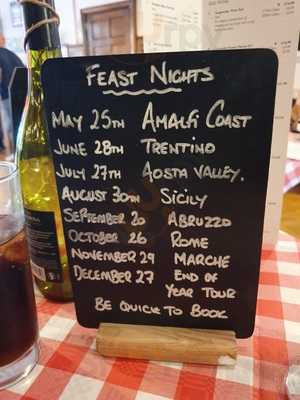 FEAST NIGHTS
MAY 25TH AMALFI COAST
JUNE 28TH TRENTINO
JULY 27TH AOSTA VALLEY.
AUGUST 30TH SICILY
SEPTEMBER 20 ABRUZZO
OCTOBER 26 ROME
NOVEMBER 29 MARCHE
DECEMBER 27 END OF
YEAR TOUR
BE QUICK TO BOOK